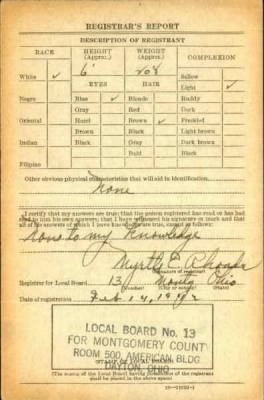 REGISTRAR'S REPORT
DESCRIPTION OF REGISTRANT
RACE HEIGHT (Approx.) WEIGHT (Approx.) COMPLEXION
White ✓ 6' 208 Sallow
EYES HAIR Light ✓
Negro Blue ✓ Blonde Ruddy
Gray Red Dark
Oriental Hazel Brown ✓ Freckled
Brown Black Light brown
Indian Black Gray Dark brown
Bald Black
Filipino
Other obvious physical characteristics that will aid in identification
None
I certify that my answers are true; that the person registered has read or has had
read to him his own answers; that I have witnessed his signature or mark and that
all of his answers of which I have knowledge are true, except as follows:
None to my Knowledge
Myrtle E. Rhoads
(Signature of registrar)
Registrar for Local Board 13 Montg Ohio
(Number) (City or county) (State)
Date of registration Feb 14, 1942
LOCAL BOARD No. 13
FOR MONTGOMERY COUNT
ROOM 500, AMERICAN BLDG
DAYTON, OHIO
(STAMP OF LOCAL BOARD)
(The stamp of the Local Board having jurisdiction of the registrant
shall be placed in the above space)